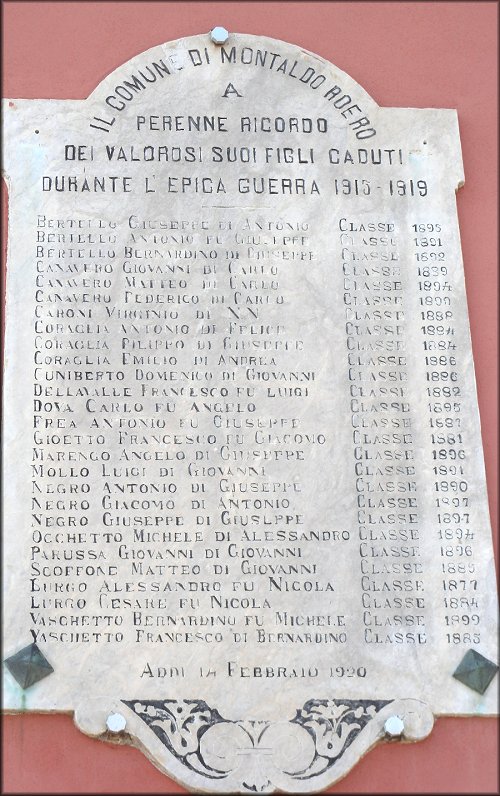 IL COMUNE DI MONTALDO ROERO
A
PERENNE RICORDO
DEI VALOROSI SUOI FIGLI CADUTI
DURANTE L'EPICA GUERRA 1915-1919
BERTELLO GIUSEPPE DI ANTONIO CLASSE 1895
BERTELLO ANTONIO FU GIUSEPPE CLASSE 1891
BERTELLO BERNARDINO DI GIUSEPPE CLASSE 1892
CANAVERO GIOVANNI DI CARLO CLASSE
CANAVERO MATTEO DI CARLO CLASSE 1894
CANAVERO FEDERICO DI CARLO CLASSE
CARONI VIRGINIO DI N.N CLASSE 1888
CORAGLIA ANTONIO DI FELICE CLASSE 1894
CORAGLIA FILIPPO DI GIUSEPPE CLASSE 1884
CORAGLIA EMILIO DI ANDREA CLASSE 1886
CUNIBERTO DOMENICO DI GIOVANNI CLASSE
DELLAVALLE FRANCESCO FU LUIGI CLASSE 1882
DOVA CARLO FU ANGELO CLASSE 1895
FREA ANTONIO FU GIUSEPPE CLASSE 1887
GIOETTO FRANCESCO FU GIACOMO CLASSE 1881
MARENGO ANGELO DI GIUSEPPE CLASSE 1896
MOLLO LUIGI DI GIOVANNI CLASSE 1891
NEGRO ANTONIO DI GIUSEPPE CLASSE 1890
NEGRO GIACOMO DI ANTONIO CLASSE 1897
NEGRO GIUSEPPE DI GIUSEPPE CLASSE 1897
OCCHETTO MICHELE DI ALESSANDRO CLASSE 1894
PARUSSA GIOVANNI DI GIOVANNI CLASSE 1896
SCOFFONE MATTEO DI GIOVANNI CLASSE 1885
LURGO ALESSANDRO FU NICOLA CLASSE 1877
LURGO CESARE FU NICOLA CLASSE 1884
VASCHETTO BERNARDINO FU MICHELE CLASSE 1899
VASCHETTO FRANCESCO DI BERNARDINO CLASSE 1885
ADDI 14 FEBBRAIO 1920